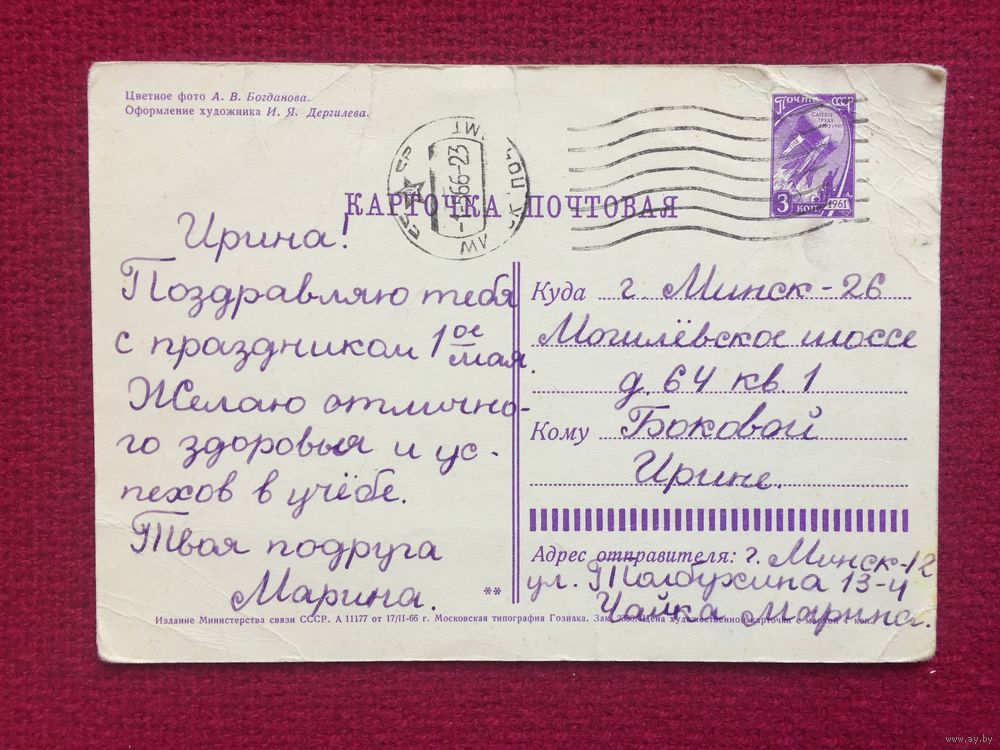 Цветное фото А. В. Богданова.
Оформление художника И. Я. Дергилева.
Почта СССР
СЛАВА
ТРУДУ
НАУКЕ
3 коп. 1961
66-23
КАРТОЧКА ПОЧТОВАЯ
Ирина!
Поздравляю тебя
с праздником 1ое мая.
Желаю отлично-
го здоровья и ус-
пехов в учёбе.
Твоя подруга
Марина.
**
Куда г. Минск-26
Могилёвское шоссе
д. 64 кв. 1
Кому Боковой
Ирине.
Адрес отправителя: г. Минск-12
ул. Толбухина 13-4
Чайка Марина.
Издание Министерства связи СССР. А 11177 от 17/II-66 г. Московская типография Гознака. Зак. Цена художественной карточки с маркой 4 коп.
www.ay.by